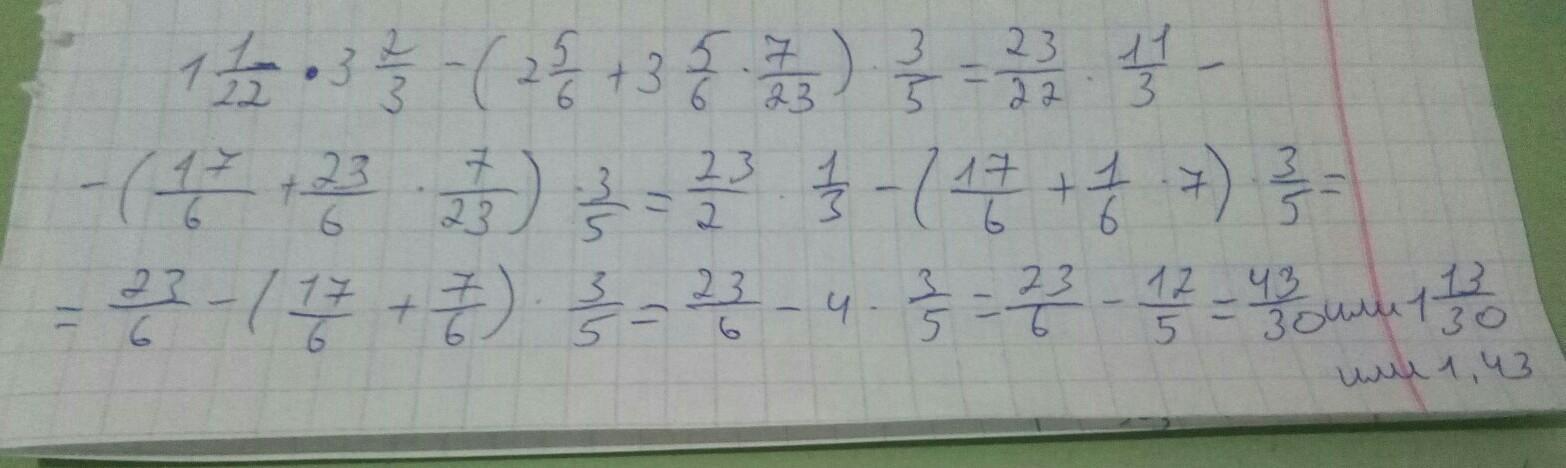 1 1/22 · 3 2/3 - (2 5/6 + 3 5/6 · 7/23) · 3/5 = 23/22 · 11/3 -
- (17/6 + 23/6 · 7/23) · 3/5 = 23/2 · 1/3 - (17/6 + 1/6 · 7) · 3/5 =
= 23/6 - (17/6 + 7/6) · 3/5 = 23/6 - 4 · 3/5 = 23/6 - 12/5 = 43/30 или 1 13/30
или 1,43